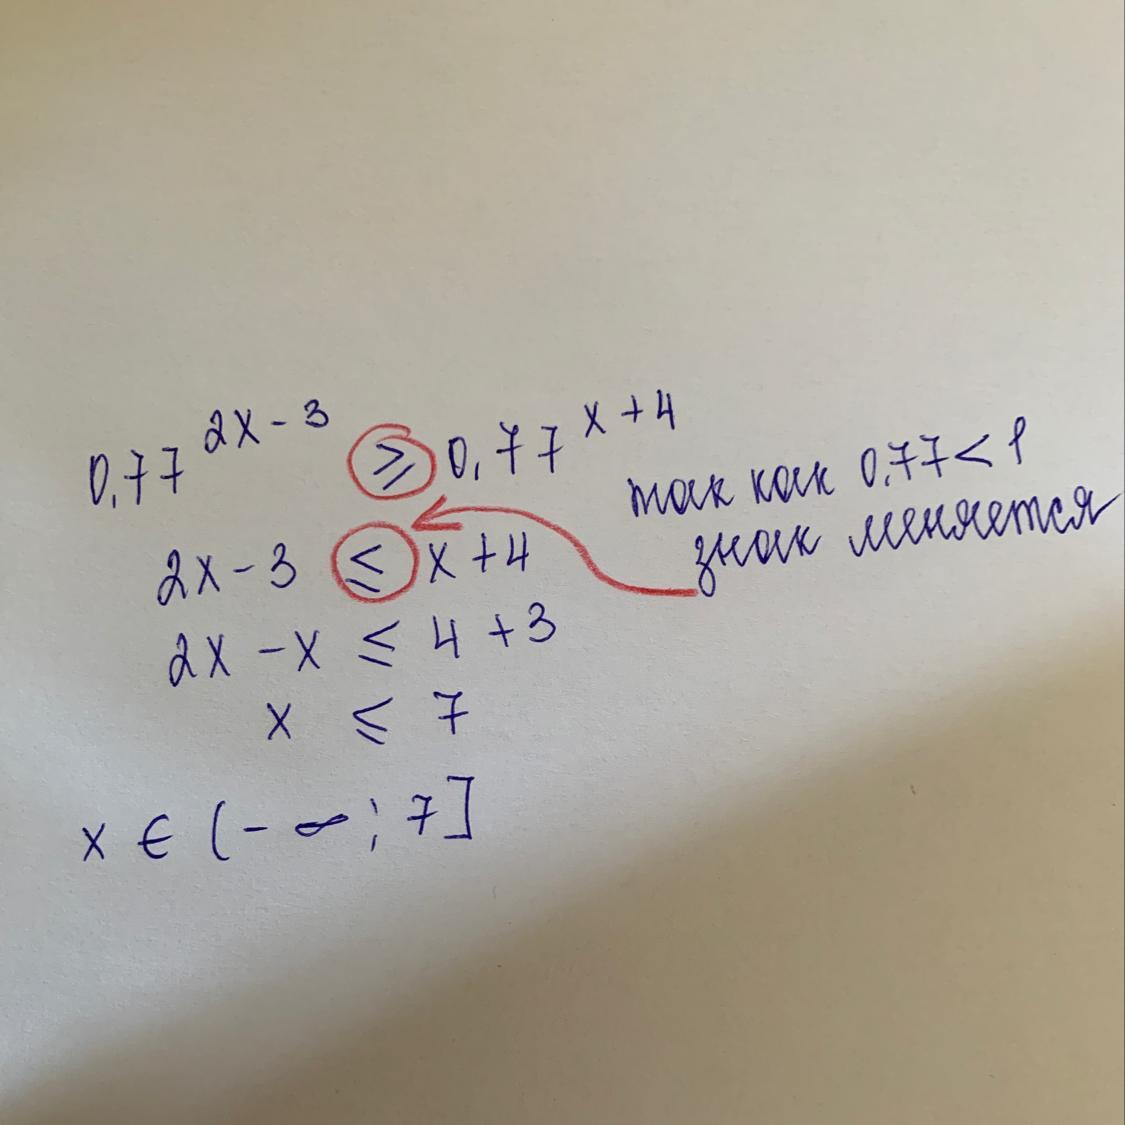 0,77^(2x-3) ⩾ 0,77^(x+4)
так как 0,77 < 1
знак меняется
2x - 3 ⩽ x + 4
2x - x ⩽ 4 + 3
x ⩽ 7
x ∈ (-∞; 7]